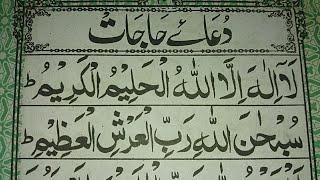 دُعَائے حَاجَاتْ
لَآ اِلٰهَ اِلَّا اللّٰهُ الْحَلِیْمُ الْكَرِیْمُ ط
سُبْحٰنَ اللّٰهِ رَبِّ الْعَرْشِ الْعَظِیْمِ ط